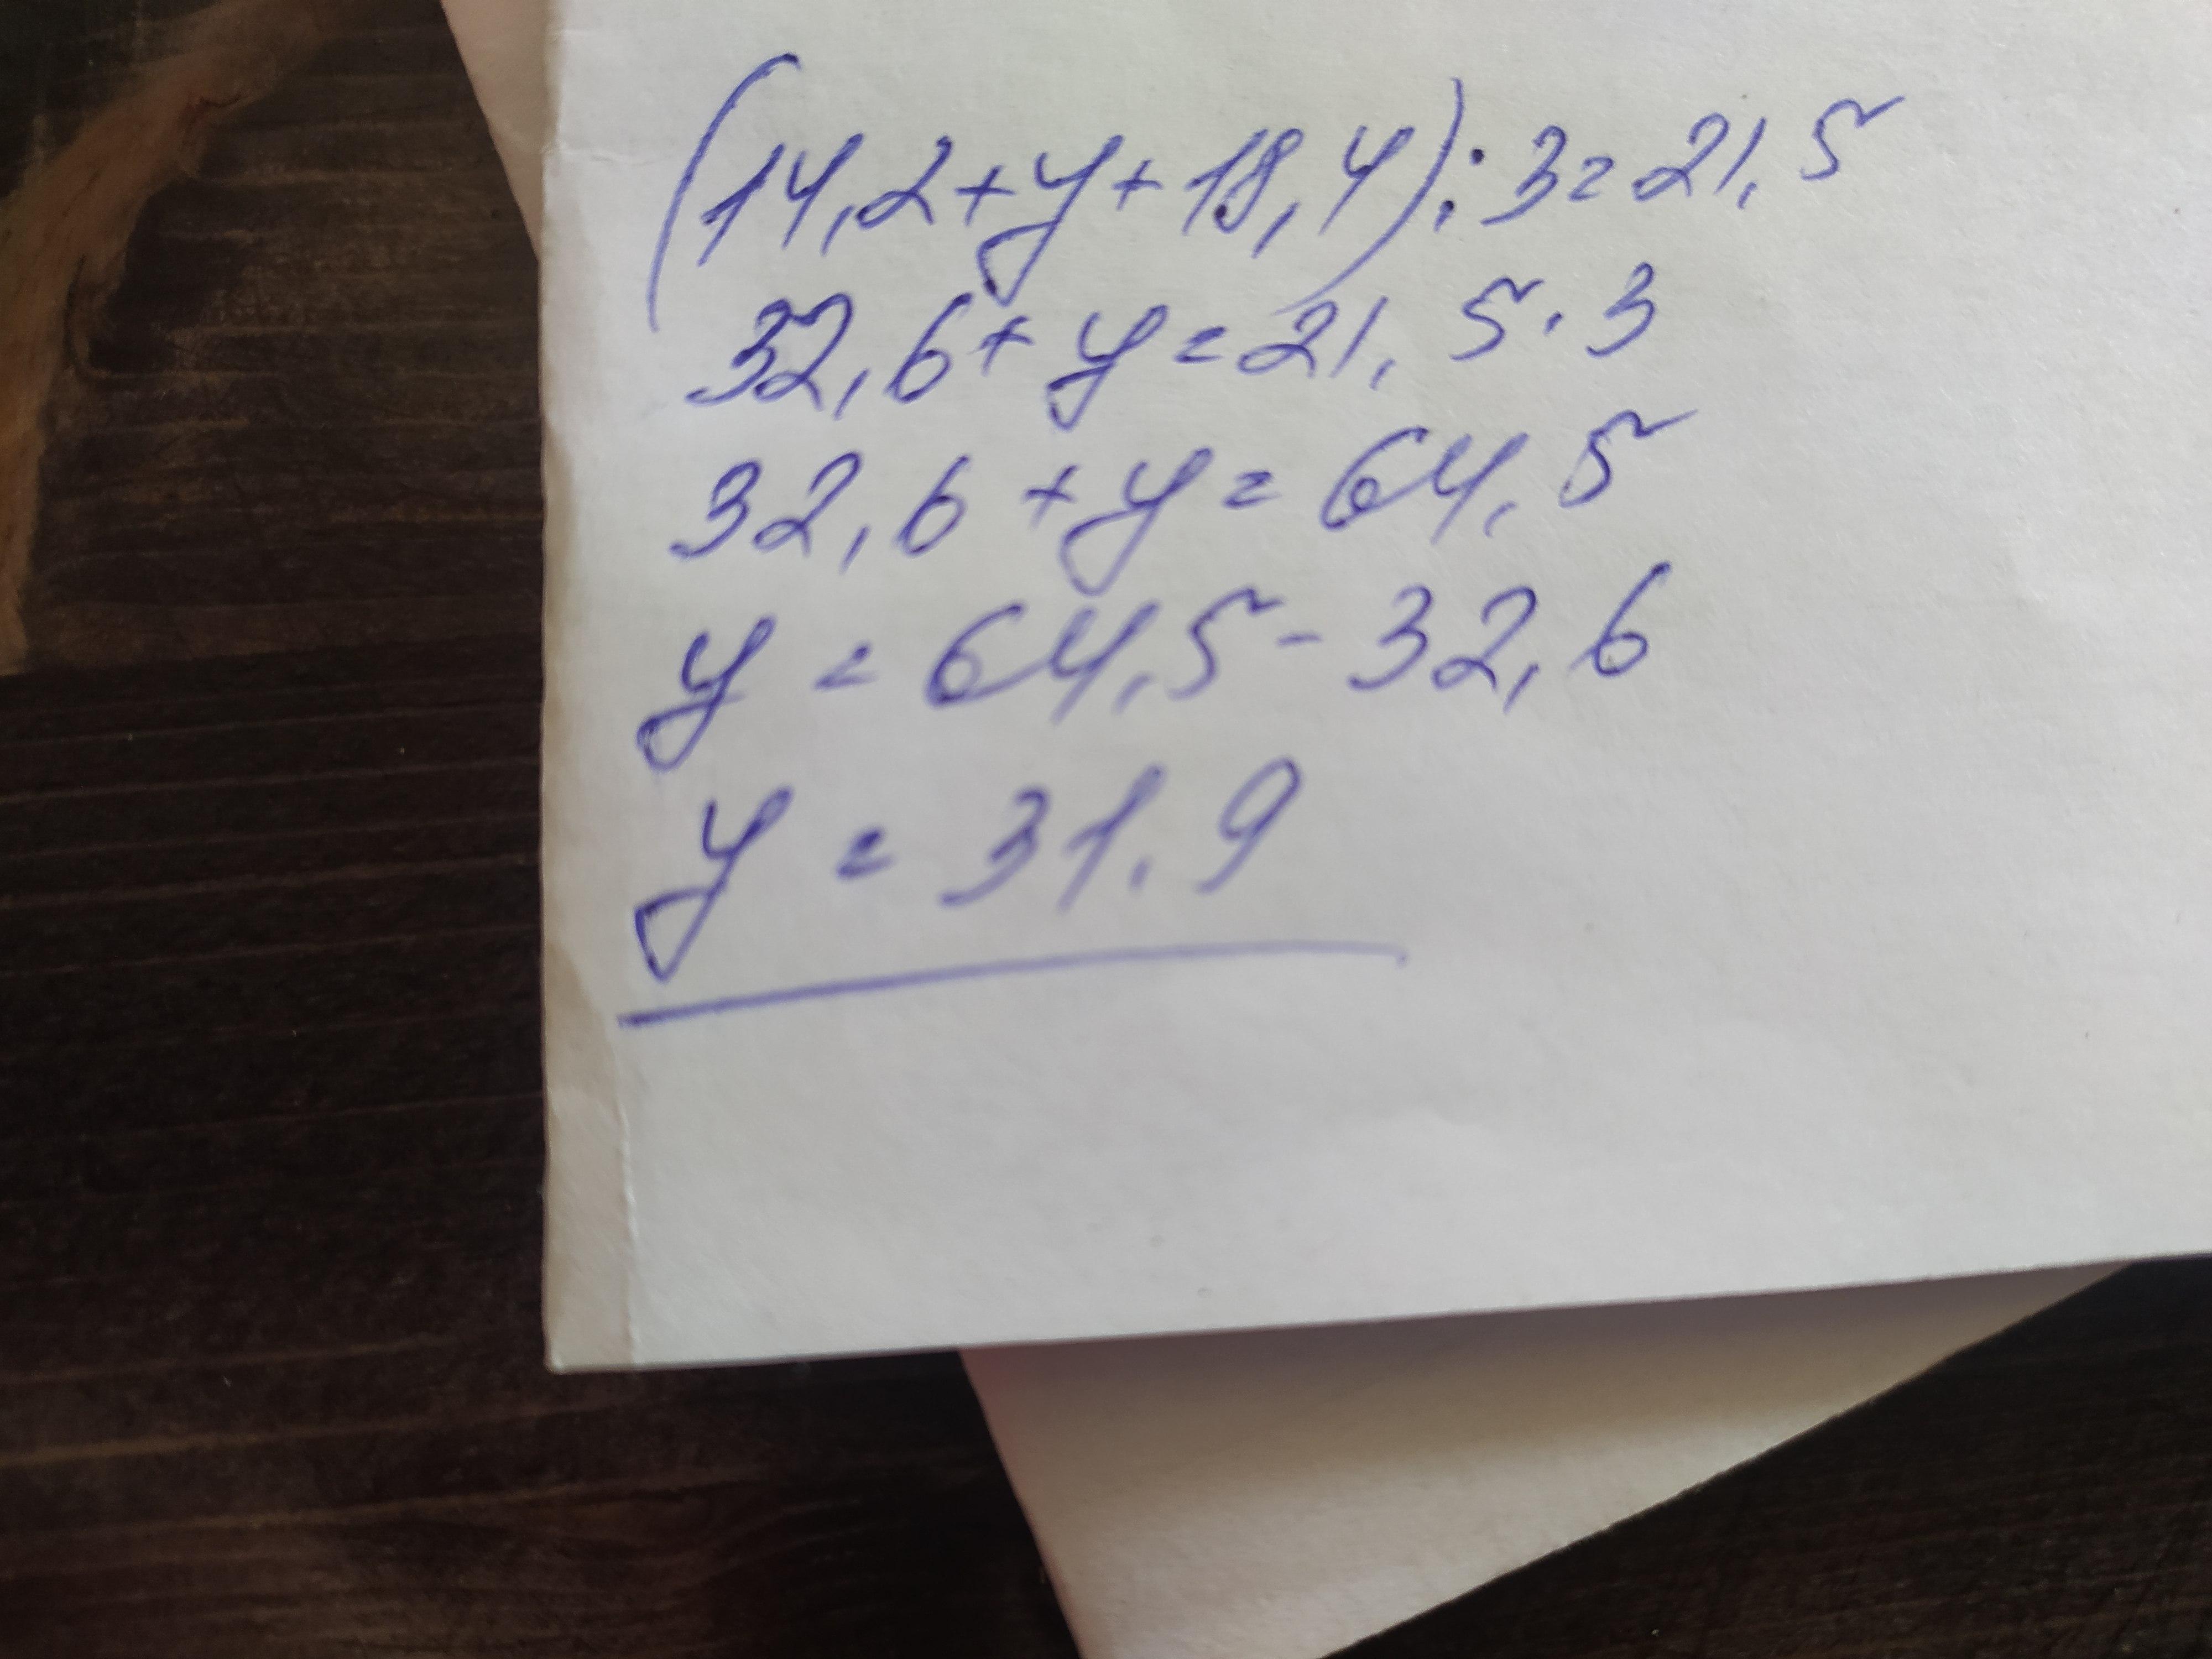 (14,2+y+18,4):3=21,5
32,6+y=21,5·3
32,6+y=64,5
y=64,5-32,6
y=31,9